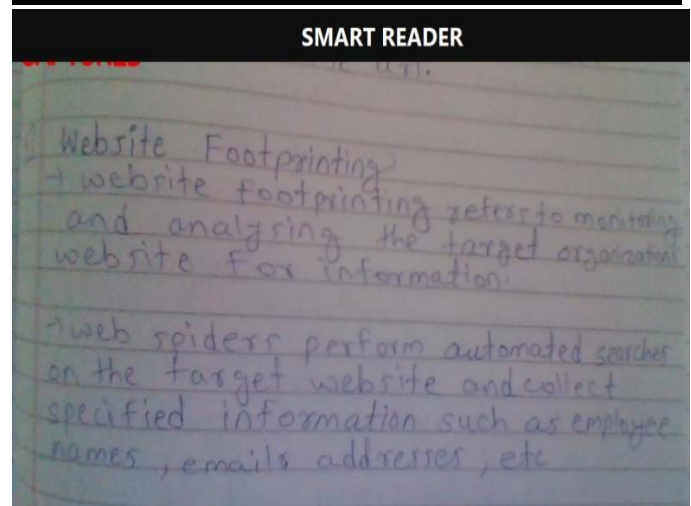 SMART READER
CAPTURED
url.
Website Footprinting
→ website footprinting refers to monitoring
and analysing the target organization
website for information.
→ web spiders perform automated searches
on the target website and collect
specified information such as employee
names, emails addresses, etc